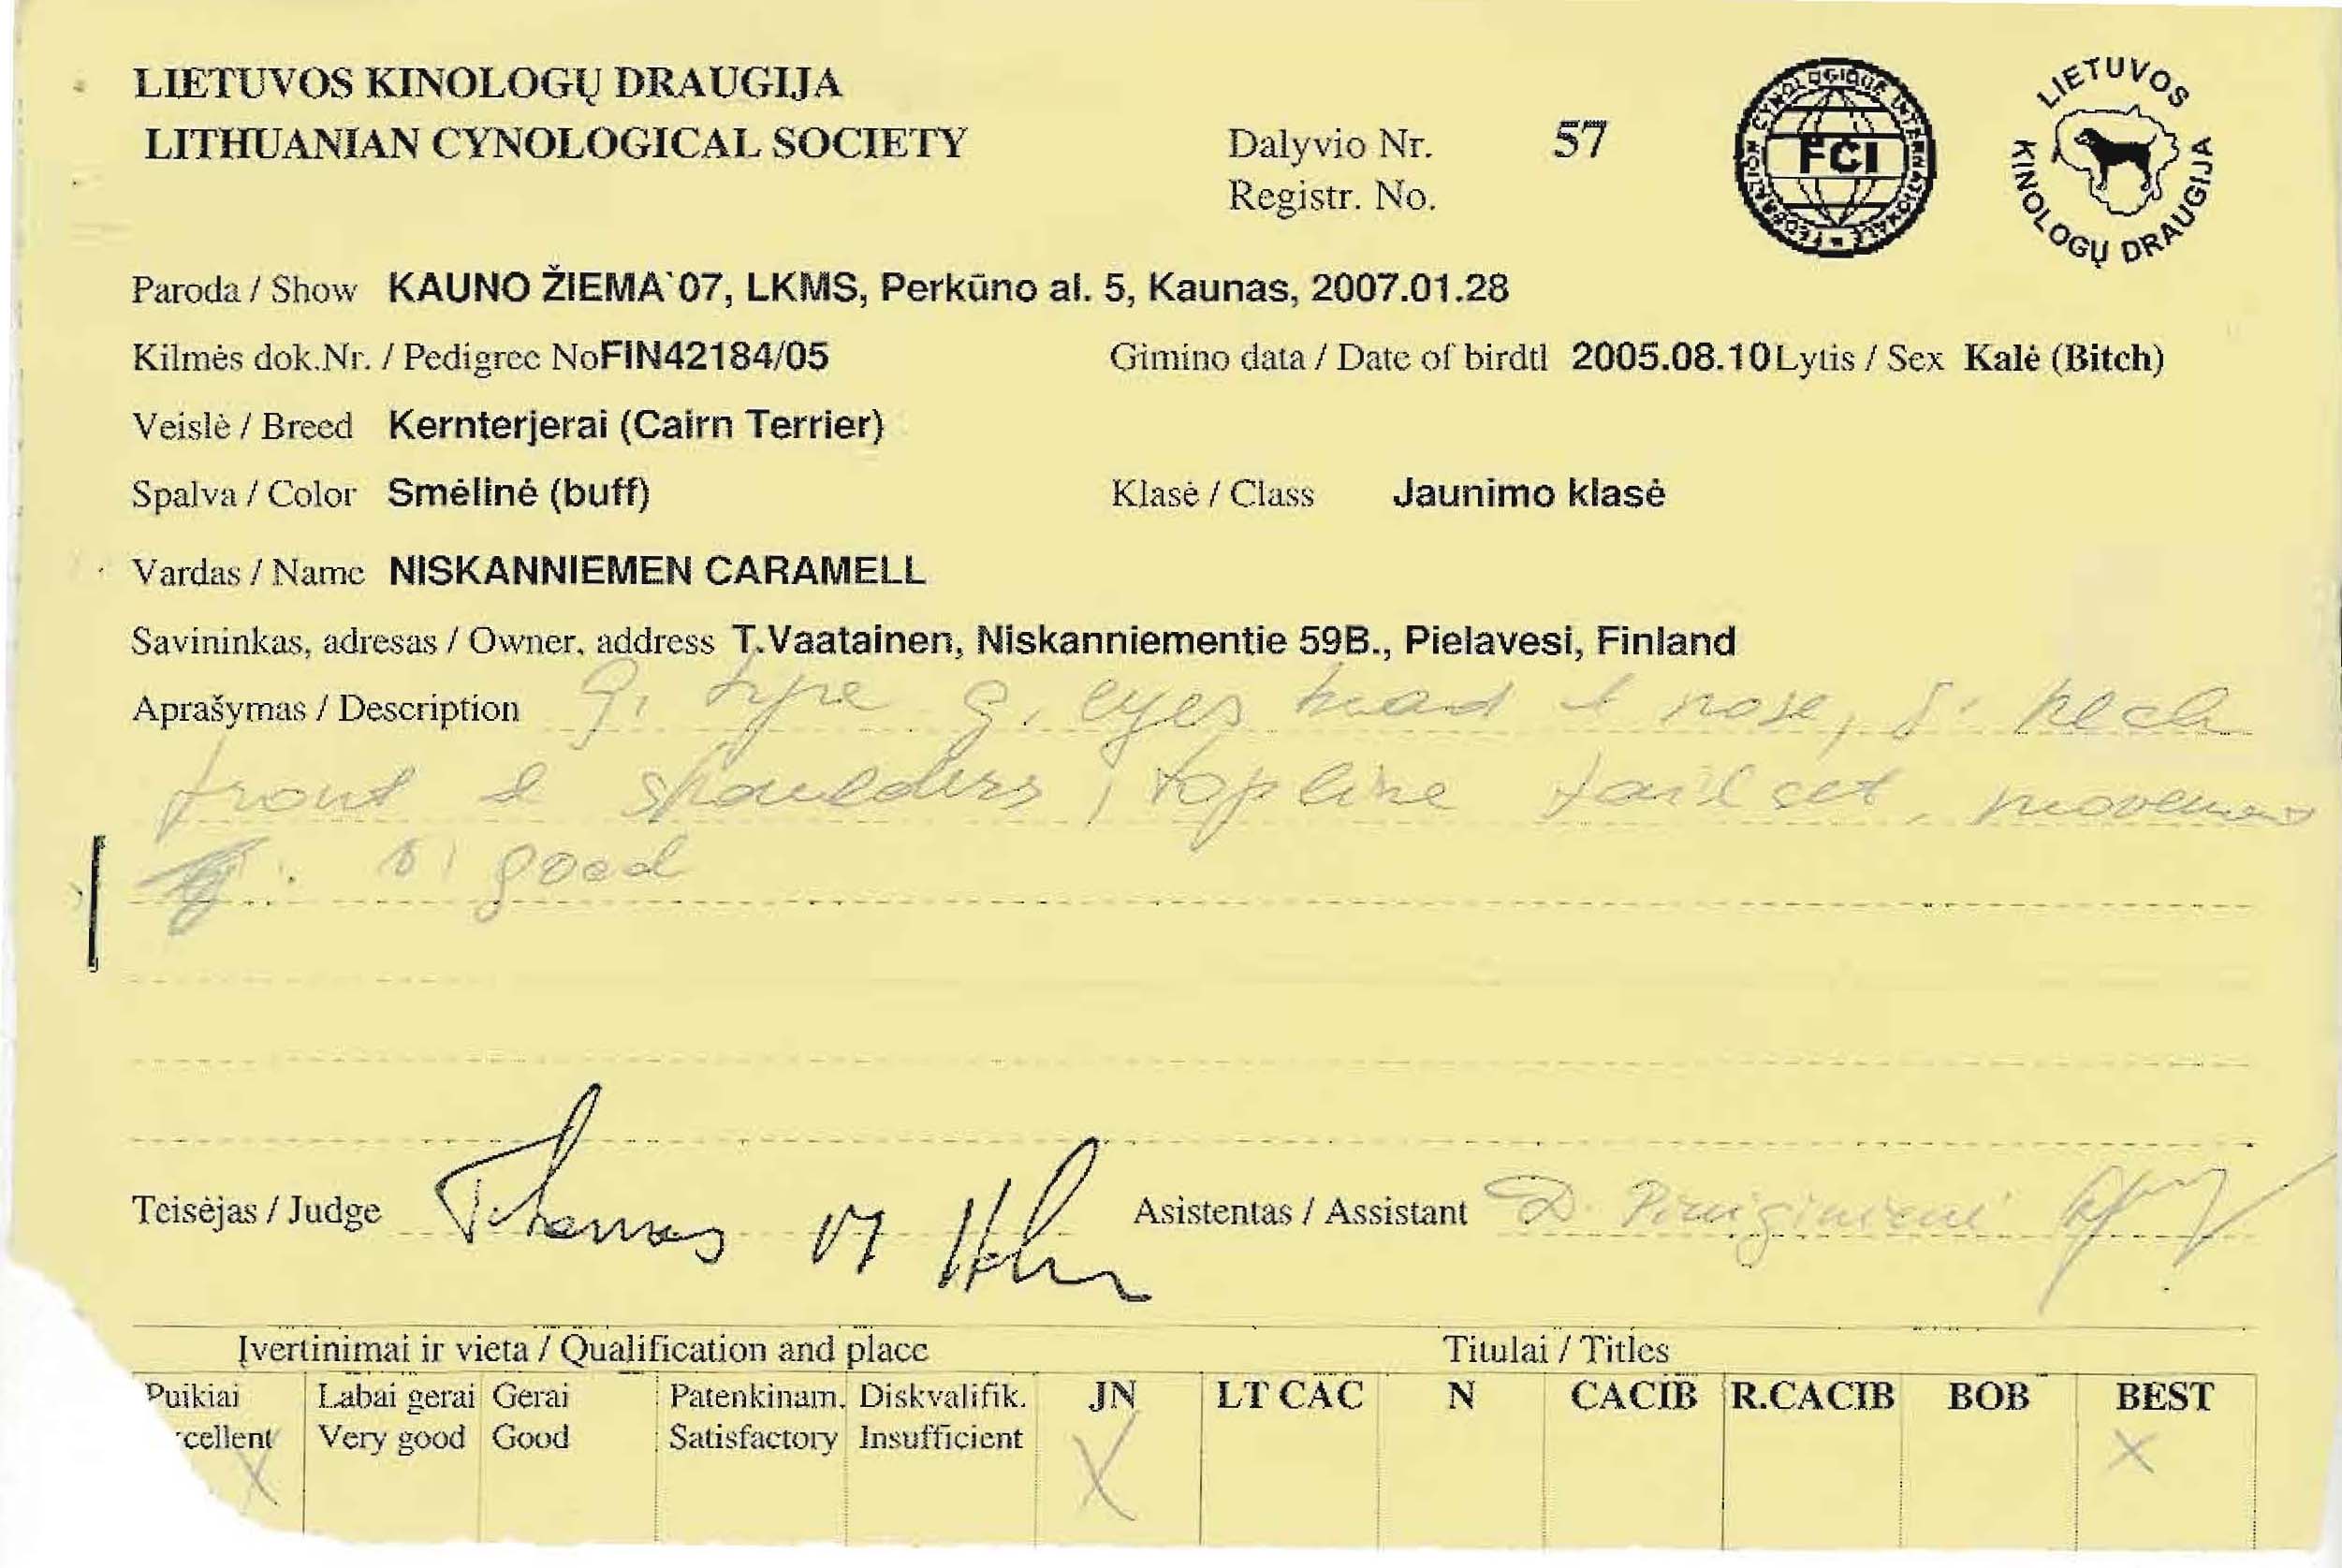 LIETUVOS KINOLOGŲ DRAUGIJA
LITHUANIAN CYNOLOGICAL SOCIETY
Dalyvio Nr. 57
Registr. No.
FEDERATION CYNOLOGIQUE INTERNATIONALE
FCI
LIETUVOS KINOLOGŲ DRAUGIJA
Paroda / Show KAUNO ŽIEMA`07, LKMS, Perkūno al. 5, Kaunas, 2007.01.28
Kilmės dok.Nr. / Pedigree NoFIN42184/05 Gimino data / Date of birdtl 2005.08.10 Lytis / Sex Kalė (Bitch)
Veislė / Breed Kernterjerai (Cairn Terrier)
Spalva / Color Smėlinė (buff) Klasė / Class Jaunimo klasė
Vardas / Name NISKANNIEMEN CARAMELL
Savininkas, adresas / Owner, address T.Vaatainen, Niskanniementie 59B., Pielavesi, Finland
Aprašymas / Description g. type g. eyes head & nose, g. neck
front & shoulders, topline tail set, movement
good
Teisėjas / Judge Thomas M Asistentas / Assistant D.
Įvertinimai ir vieta / Qualification and place Titulai / Titles
Puikiai Labai gerai Gerai Patenkinam. Diskvalifik. JN LT CAC N CACIB R.CACIB BOB BEST
cellent Very good Good Satisfactory Insufficient
X X X